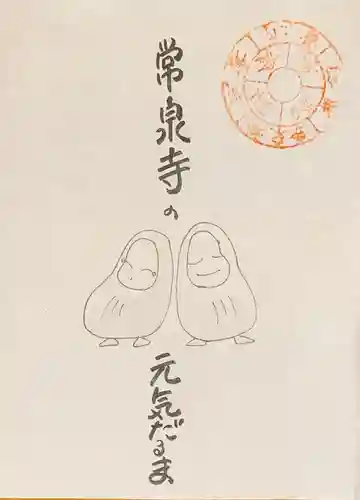 常泉寺の
元気だるま